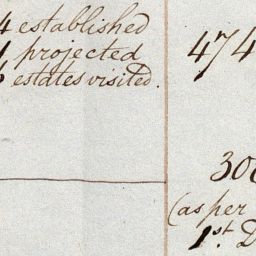 4 established
1 projected
6 estates visited.
474
30
(as per
1st. D